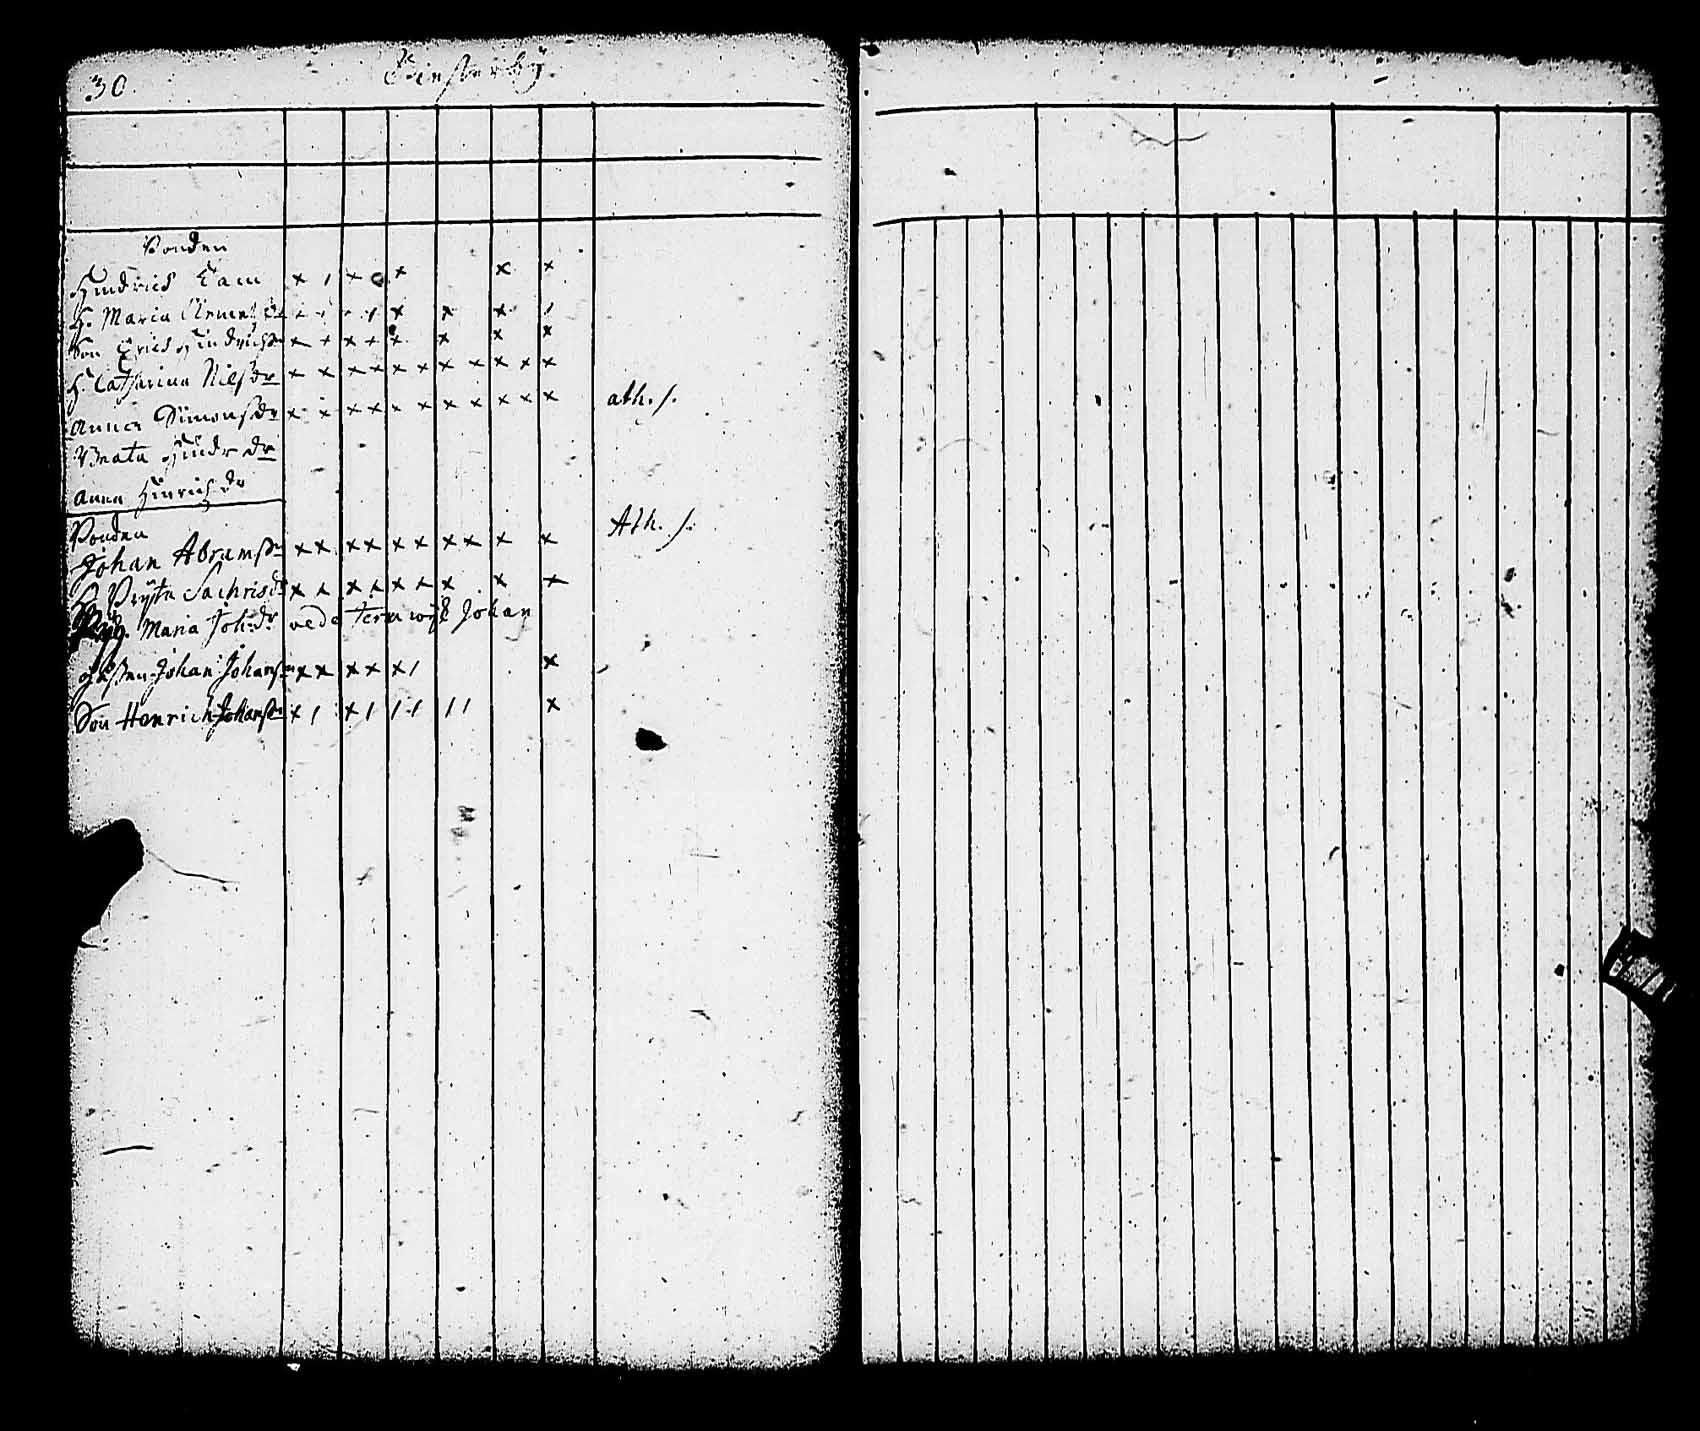 30. Finsterby
Bonden
Hindrich Tam x 1 x x x x
H. Maria Clemetsdr x x x x 1
Son Erich Hindrichss: x x x x x x x x
H. Catharina Nilsdr x x x x x x x x x x x
Anna Simonsdr x x x x x x x x x x x abh. /.
Beata Hindr dr
Anna Hinrichsdr
Bonden Abh. /.
Johan Abramss: x x x x x x x x x x
H. Brijta Sachrisdr x x x x x x x x x
Maria Joh:dr Johan
Johan Johanss: x x x x x 1 x
Son Henrich Johanss: x 1 x 1 1 1 1 1 x